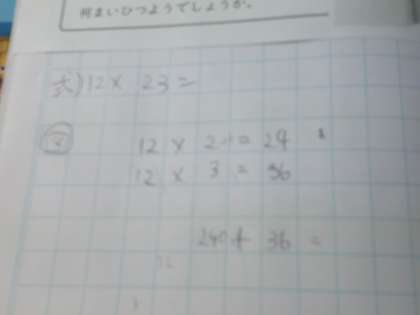 何まいひつようでしょうか。
式)12× 23=
図
12 × 2 = 24
12 × 3 = 36
240+ 36 =
12